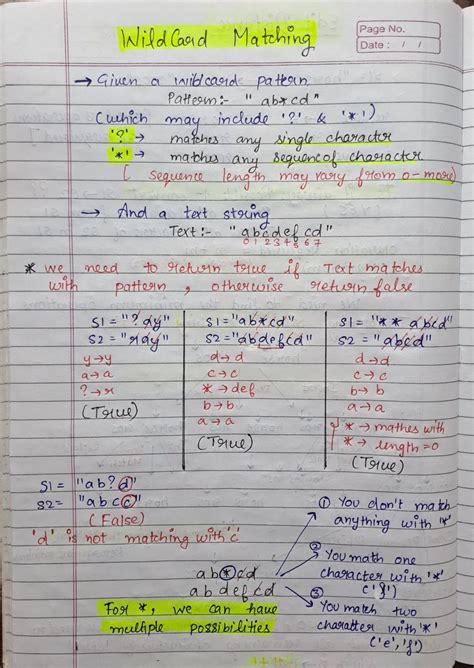 WildCard Matching
Page No.
Date : / /
→ Given a wildcard pattern
Pattern:- "ab*cd"
(which may include '?' & '*')
'?' → matches any single character
'*' → matches any sequence of character
[ sequence length may vary from 0-more)
→ And a text string
Text :- "abcdefcd"
0 1 2 3 4 5 6 7
* we need to return true if Text matches
with pattern, otherwise return false
S1 = "?ay"
S2 = "ray"
y→y
a→a
?→r
(True)
S1 = "ab*cd"
S2 = "abdefcd"
d→d
c→c
*→def
b→b
a→a
(True)
S1 = "**abcd"
S2 = "abcd"
d→d
c→c
b→b
a→a
*→ mathes with
*→ length=0
(True)
S1 = "ab?d"
S2 = "abcc"
(False)
'd' is not matching with 'c'
ab*cd
abdefcd
For *, we can have
multiple possibilities
① You don't match
anything with '*'
② You math one
character with '*'
('f')
③ You match two
charatter with '*'
('e', 'f')